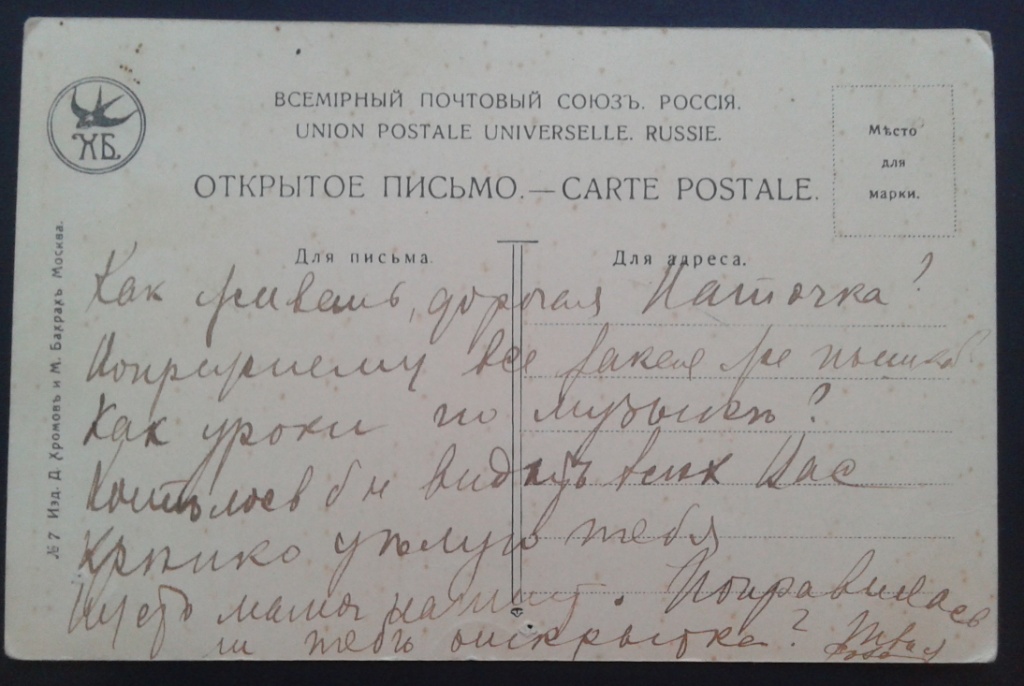 ХБ.
ВСЕМІРНЫЙ ПОЧТОВЫЙ СОЮЗЪ. РОССІЯ.
UNION POSTALE UNIVERSELLE. RUSSIE.
ОТКРЫТОЕ ПИСЬМО.—CARTE POSTALE.
Мѣсто
для
марки.
Для письма.
Для адреса.
№ 7 Изд. Д. Хромовъ и М. Бахрахъ Москва.
Как живешь, дорогая Наточка?
Попрежнему все такая же
Как уроки по музыкѣ?
Хотѣлось бы видѣть всѣх Вас
Крѣпко цѣлую тебя
Пусть мама напишет. Понравилась
ли тебѣ открытка? Твоя